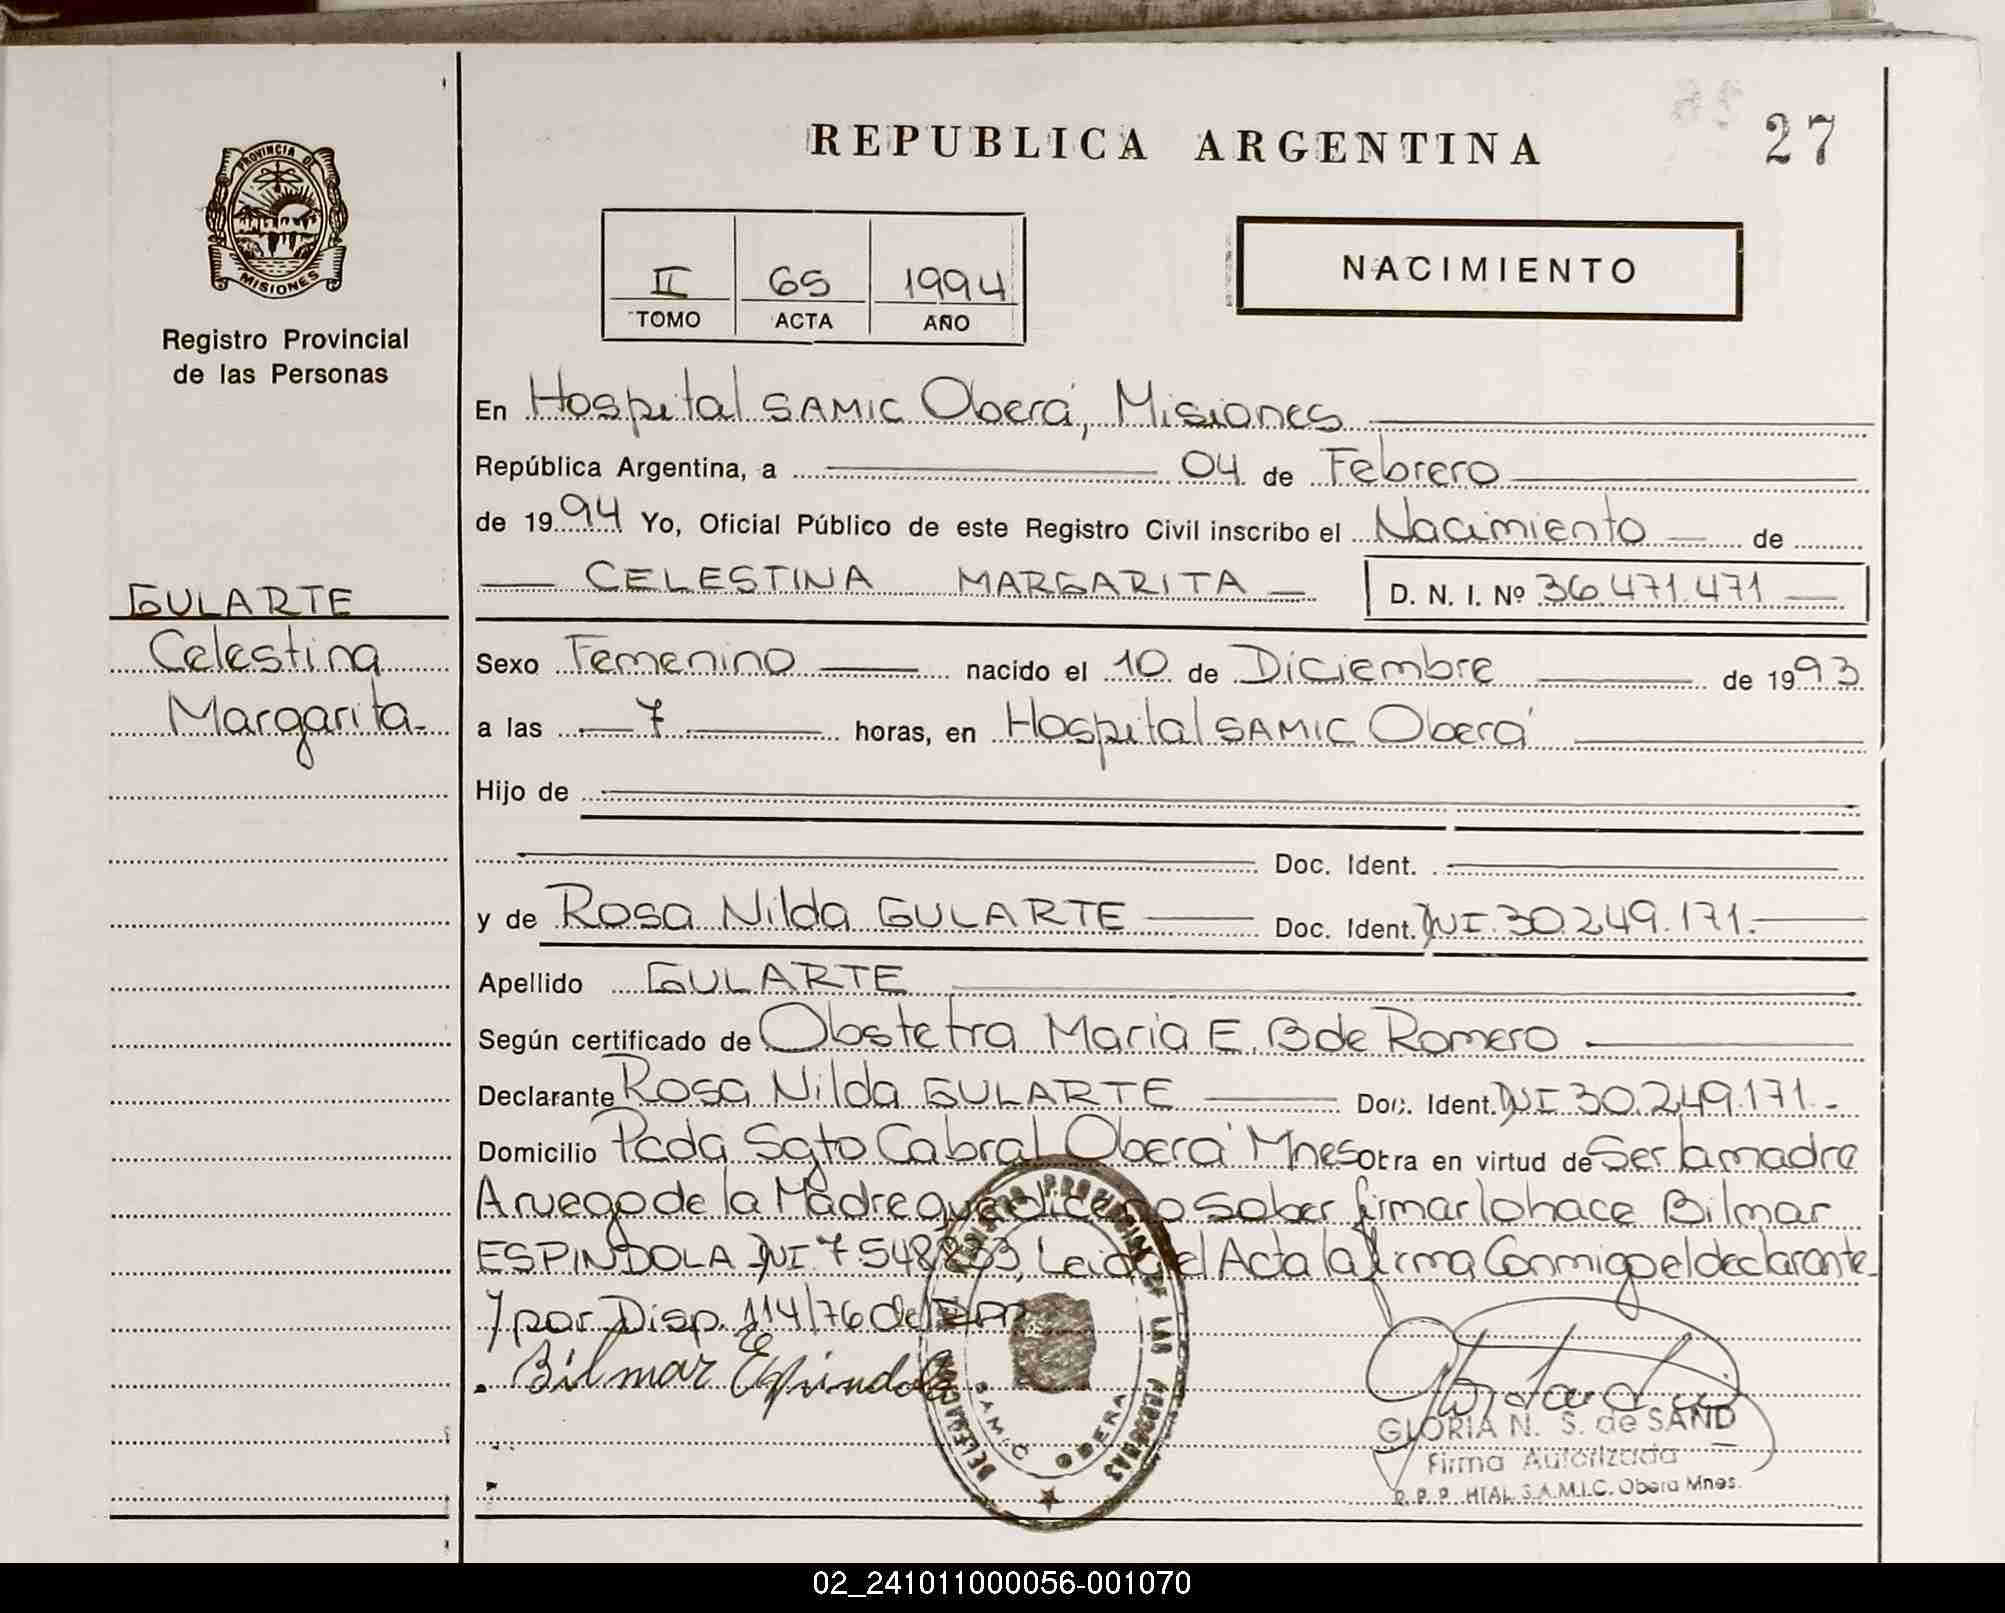 REPUBLICA ARGENTINA
27
PROVINCIA DE
MISIONES
Registro Provincial
de las Personas
II 65 1994
TOMO ACTA AÑO
NACIMIENTO
En Hospital SAMIC Oberá, Misiones
República Argentina, a 04 de Febrero
de 1994 Yo, Oficial Público de este Registro Civil inscribo el Nacimiento de
CELESTINA MARGARITA D. N. I. Nº 36.471.471
GULARTE
Celestina
Margarita.
Sexo Femenino nacido el 10 de Diciembre de 1993
a las 7 horas, en Hospital SAMIC Oberá
Hijo de
Doc. Ident.
y de Rosa Nilda GULARTE Doc. Ident. DNI. 30.249.171.
Apellido GULARTE
Según certificado de Obstetra Maria E. B de Romero
Declarante Rosa Nilda GULARTE Doc. Ident. DNI 30.249.171.
Domicilio Pcda Sgto Cabral Oberá Mnes Obra en virtud de Ser la madre
A ruego de la Madre que dice no saber firmar lo hace Bilmar
ESPINDOLA DNI 7548833, Leida el Acta la firma Conmigo el declarante
y por Disp. 114/76 del
Bilmar Espindola
REGISTRO PROVINCIAL DE LAS PERSONAS
DELEGACION
SAMIC OBERA
GLORIA N. S. de SAND
Firma Autorizada
R. P. P. HTAL. S.A.M.I.C. Obera Mnes.
02_241011000056-001070